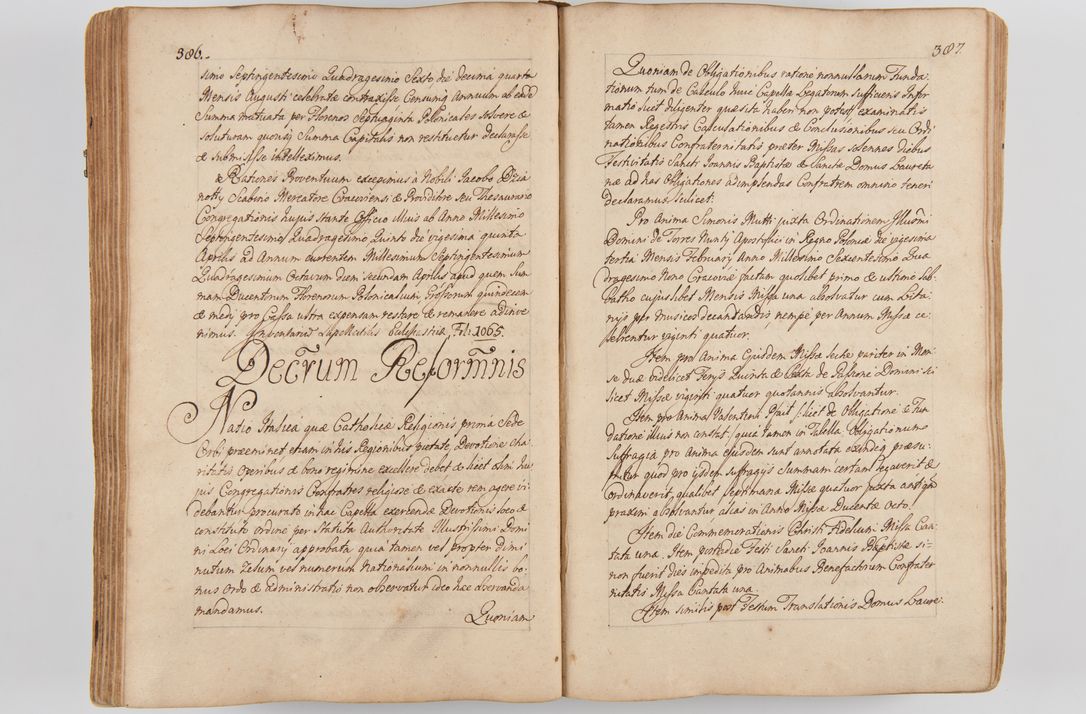 386.
simo Septingentesimo Quadragesimo Sexto die decima quarta
Mensis Augusti celebratæ contraxisse Censumq Annuum ab eadē
Summa mutuata per Florenos Septuaginta Polonicales solvere &
soluturam quousq Summa Capitalis non restituetur declarasse
& submisisse intelleximus.
& Rationes Proventuum excepimus à Nobili Jacobo Dzia
notty Scabino Mercatore Cracoviensi & Provisore seu Thesaurario
Congregationis hujus stante Officio illius ab Anno Millesimo
Septingentesimo Quadragesimo Quinto die vigesima quinta
Aprilis ad Annum currentem Millesimum Septingentesimum
Quadragesimum Octavum diem secundam Aprilis apud quem Sum
mam Ducentorum Florenorum Polonicalium Grossorum quindecem
& medÿ pro Cassa ultra expensam restare & remanere adinve
nimus. Inventariū Supellectilis Ecclesiasticæ Fol: 1065.
Decrum Reformnis
Natio Italica quæ Catholicæ Religionis prima Sede
Orbi præeminet etiam in his Regionibus pietate, Devotione cha
ritatis operibus & bono regimine excellere debet & licet olim hu
jus Congregationis Confratres religiose & exacte rem agere vi
debantur procurato in hac Capella exercendæ Devotionis loco &
constituto ordine per Statuta Authoritate Illustrissimi Domi
ni Loci Ordinarÿ approbata quia tamen vel propter dimi
nutum Zelum vel numerum Nationalium in nonnullis bo
nus ordo & administratio non observatur ideo hæc observanda
mandamus.
Quoniam
387.
Quoniam de Obligationibus ratione nonnullarum Funda
tionum tum de Calculo huic Capellæ Legatorum sufficiens Infor
matio licet diligenter quæsita haberi non potest examinatis
tamen Regestris Calculationibus & Conclusionibus seu Ordi
nationibus Confraternitatis præter Missas solennes diebus
Festivitatis Sancti Joannis Baptistæ & Sanctæ Domus Laureta
næ ad has Obligationes adimplendas Confratrem omnino teneri
declaramus scilicet:
Pro Anima Simonis Mutti juxta Ordinationem Illusmi
Domini de Torres Nuntÿ Apostolici in Regno Poloniæ die vigesima
tertia Mensis Februarÿ Anno Millesimo Sexcentesimo Qua
dragesimo Nono Cracoviæ factam quolibet primo & ultimo Sab
batho cujuslibet Mensis Missa una absolvatur cum Lita
nÿs per Musicos decantandis, nempe per Annum Missæ ce
lebrentur viginti quatuor.
Item pro Anima Ejusdem Missæ lectæ pariter in Men
se duæ videlicet Ferÿs Quinta & Sexta de Passione Domini sci
licet Missæ viginti quatuor quotannis absolvantur.
Item pro Anima Valentini licet de Obligatione & Fun
datione illius non constat, quia tamen in Tabella Obligationum
Suffragia pro anima ejusdem sunt annotata exindeq præsu
mitur quod pro ÿsdem suffragÿs Summam certam legaverit &
ordinaverit, qualibet septimana Missæ quatuor juxta antiquā
praxim absolvantur alias in Anno Missæ Ducentæ octo.
Item die Commemorationis Christi Fidelium Missa Can
tata una. Item postridie Festi Sancti Joannis Baptistæ si
non fuerit dies impedita pro Animabus Benefactorum Confrater
nitatis Missa Cantata una.
Item similis post Festum Translationis Domus Laure-